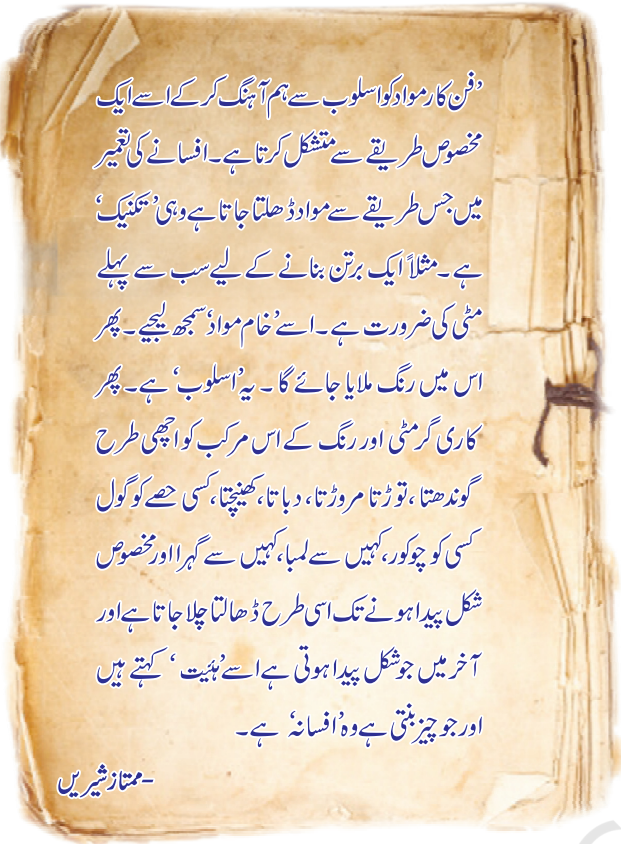 ’فن کار مواد کو اسلوب سے ہم آہنگ کر کے اسے ایک
مخصوص طریقے سے متشکل کرتا ہے۔ افسانے کی تعمیر
میں جس طریقے سے مواد ڈھلتا جاتا ہے وہی ’تکنیک‘
ہے۔ مثلاً ایک برتن بنانے کے لیے سب سے پہلے
مٹی کی ضرورت ہے۔ اسے ’خام مواد‘ سمجھ لیجیے۔ پھر
اس میں رنگ ملایا جائے گا۔ یہ ’اسلوب‘ ہے۔ پھر
کاری گر مٹی اور رنگ کے اس مرکب کو اچھی طرح
گوندھتا، توڑتا مروڑتا، دباتا، کھینچتا، کسی حصے کو گول
کسی کو چوکور، کہیں سے لمبا، کہیں سے گہرا اور مخصوص
شکل پیدا ہونے تک اسی طرح ڈھالتا چلا جاتا ہے اور
آخر میں جو شکل پیدا ہوتی ہے اسے ’ہئیت‘ کہتے ہیں
اور جو چیز بنتی ہے وہ ’افسانہ‘ ہے۔
-ممتاز شیریں